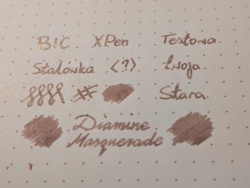 BIC XPen Testowa
Stalówka (?) twoja
Stara
Diamine
Masquerade